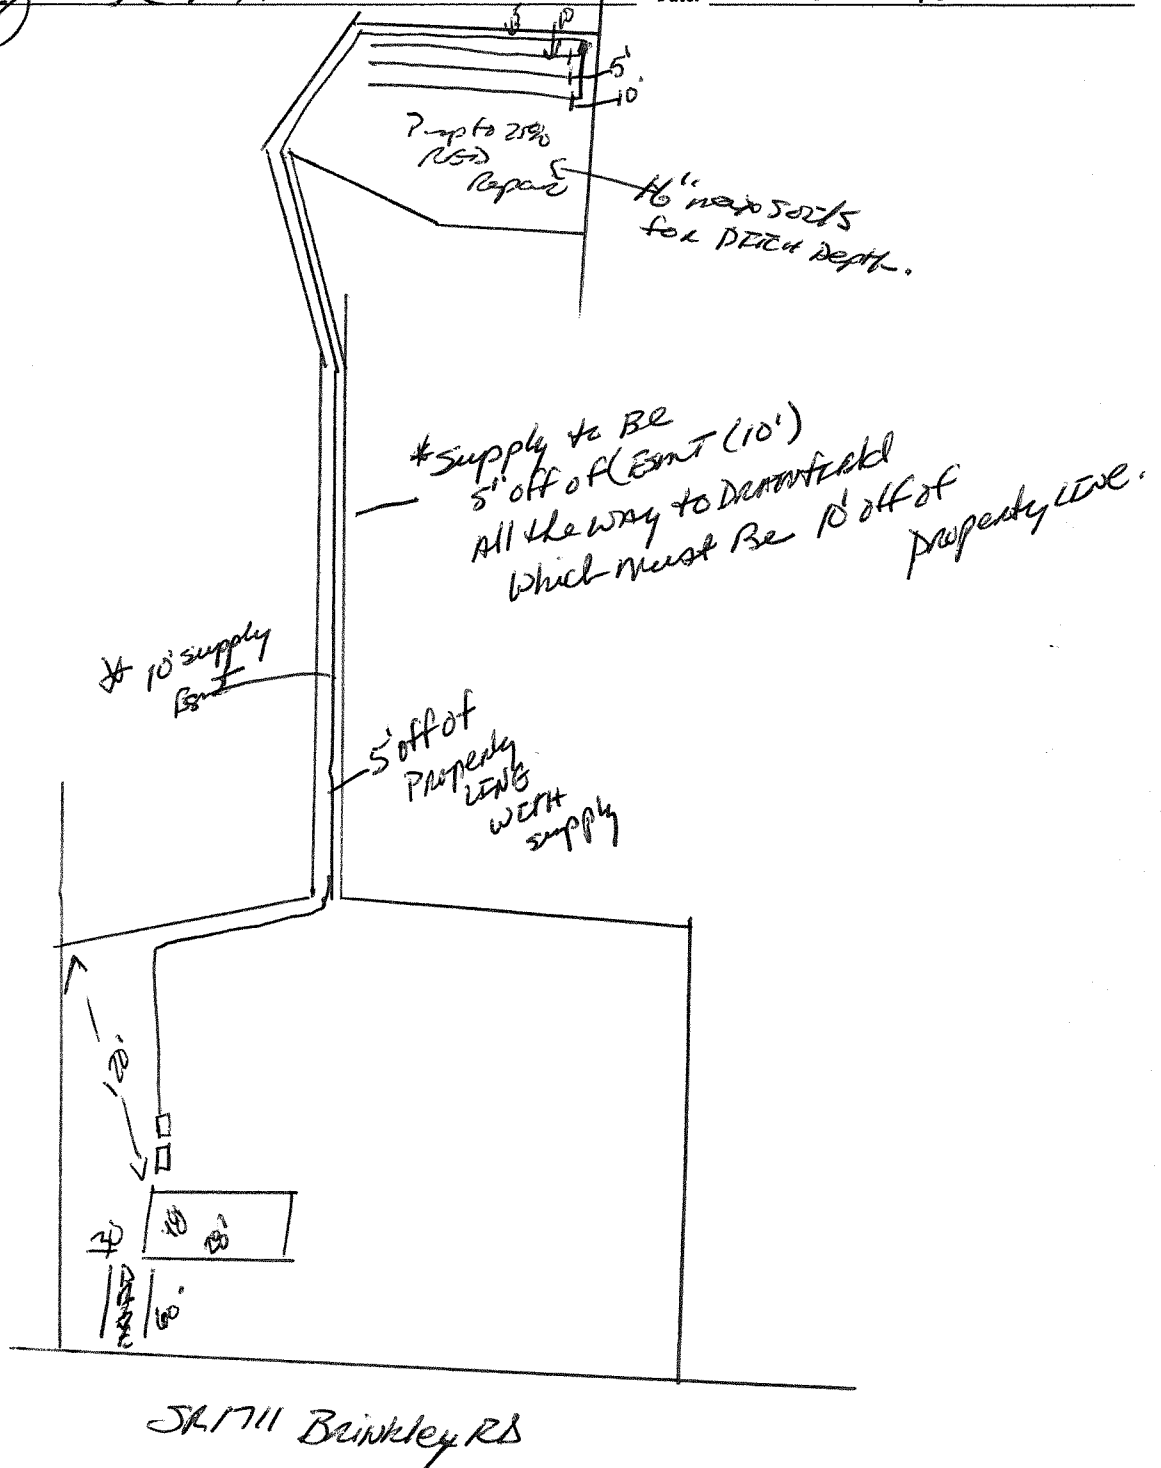 10
5'
10'
Pump to 25%
RED
Repair
16" max soils
for DITCH Depth.
*Supply to Be
5' off of (Esmt (10')
All the way to DRAINField
Which must Be 10' off of
property LINE.
* 10' supply
Esmt
5' off of
Property
LINE
WITH
supply
120'
60'
SR1711 Brinkley RD